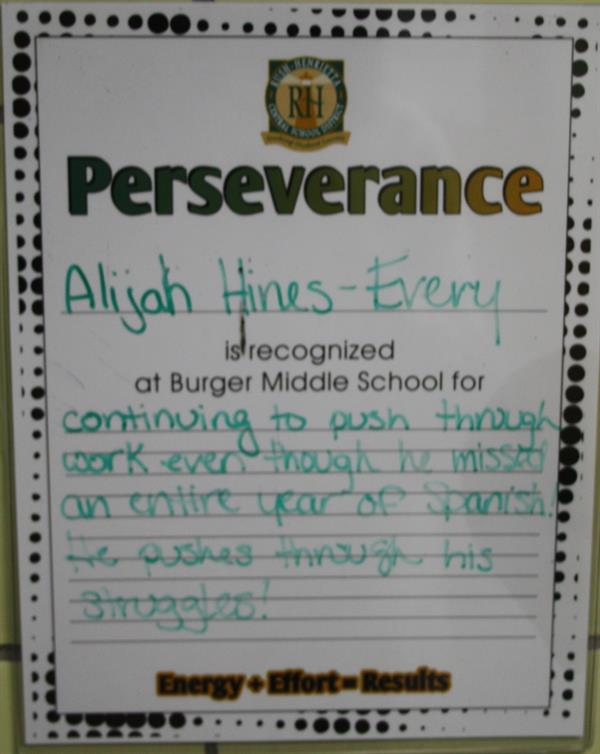 RUSH-HENRIETTA
RH
CENTRAL SCHOOL DISTRICT
Perseverance
Alijah Hines-Every
is recognized
at Burger Middle School for
continuing to push through
work even though he missed
an entire year of Spanish!
He pushes through his
struggles!
Energy + Effort = Results